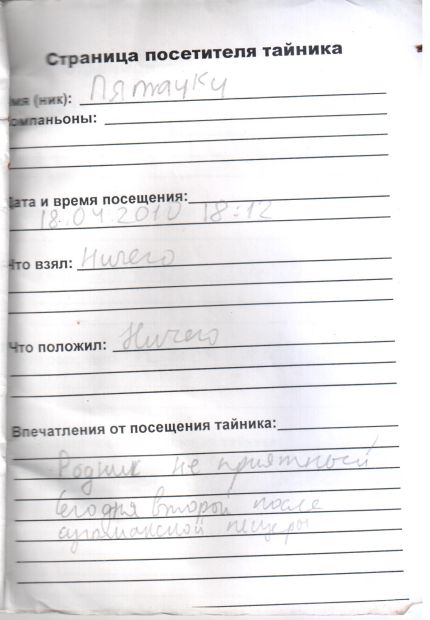 Страница посетителя тайника
Имя (ник): Пятачку
Компаньоны:
Дата и время посещения:
18.04.2010 18:12
Что взял: Ничего
Что положил: Ничего
Впечатления от посещения тайника:
Родник не приятный
Сегодня второй после
пещеры